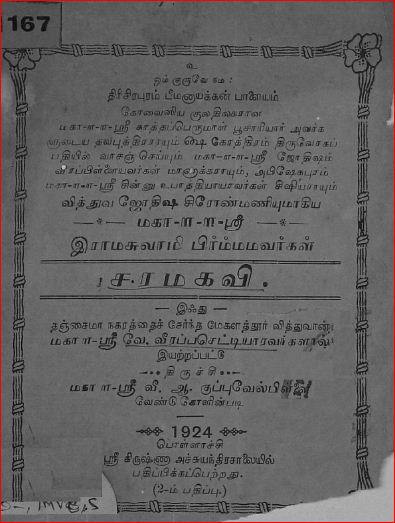 167
உ
ஓம் குருவே நம :
திரிசிரபுரம் பீமனாயக்கன் பாளையம்
கோலைனிய குலதிலகரான
மகா-ள-ள-ஸ்ரீ காத்தப்பெருமாள் பூசாரியார் அவர்க
ளுடைய தவபுத்திரராயும் ௸ கோத்திரம் திருவோகப்
பதியில் வாசஞ் செய்யும் மகா-ள-ள-ஸ்ரீ ஜோதிஷம்
வீரப்பிள்ளையவர்கள் மாணாக்கராயும், அபிஷேகபுரம்
மகா-ள-ள-ஸ்ரீ சின்னு உபாத்தியாயாவர்கள் சிஷ்யராயும்
வித்துவ ஜோதிஷ சிரோண்மணியுமாகிய
மகா-ள-ள-ஸ்ரீ
இராமசுவாமி பிர்ம்மமவர்கள்
சரமகவி.
இஃது
தஞ்சைமா நகரத்தைச் சேர்ந்த மேகளத்தூர் வித்துவான்
மகா ள-ஸ்ரீ வே. வீரப்பசெட்டியாரவர்களால்
இயற்றப்பட்டு
திருச்சி
மகா ள-ஸ்ரீ வீ. ஆ. குப்புவேல்பிள்ளை
வேண்டுகோளின்படி
1924
பொள்ளாச்சி
ஸ்ரீ கிருஷ்ணா அச்சுயந்திரசாலையில்
பதிப்பிக்கப்பெற்றது.
(2-ம் பதிப்பு.)